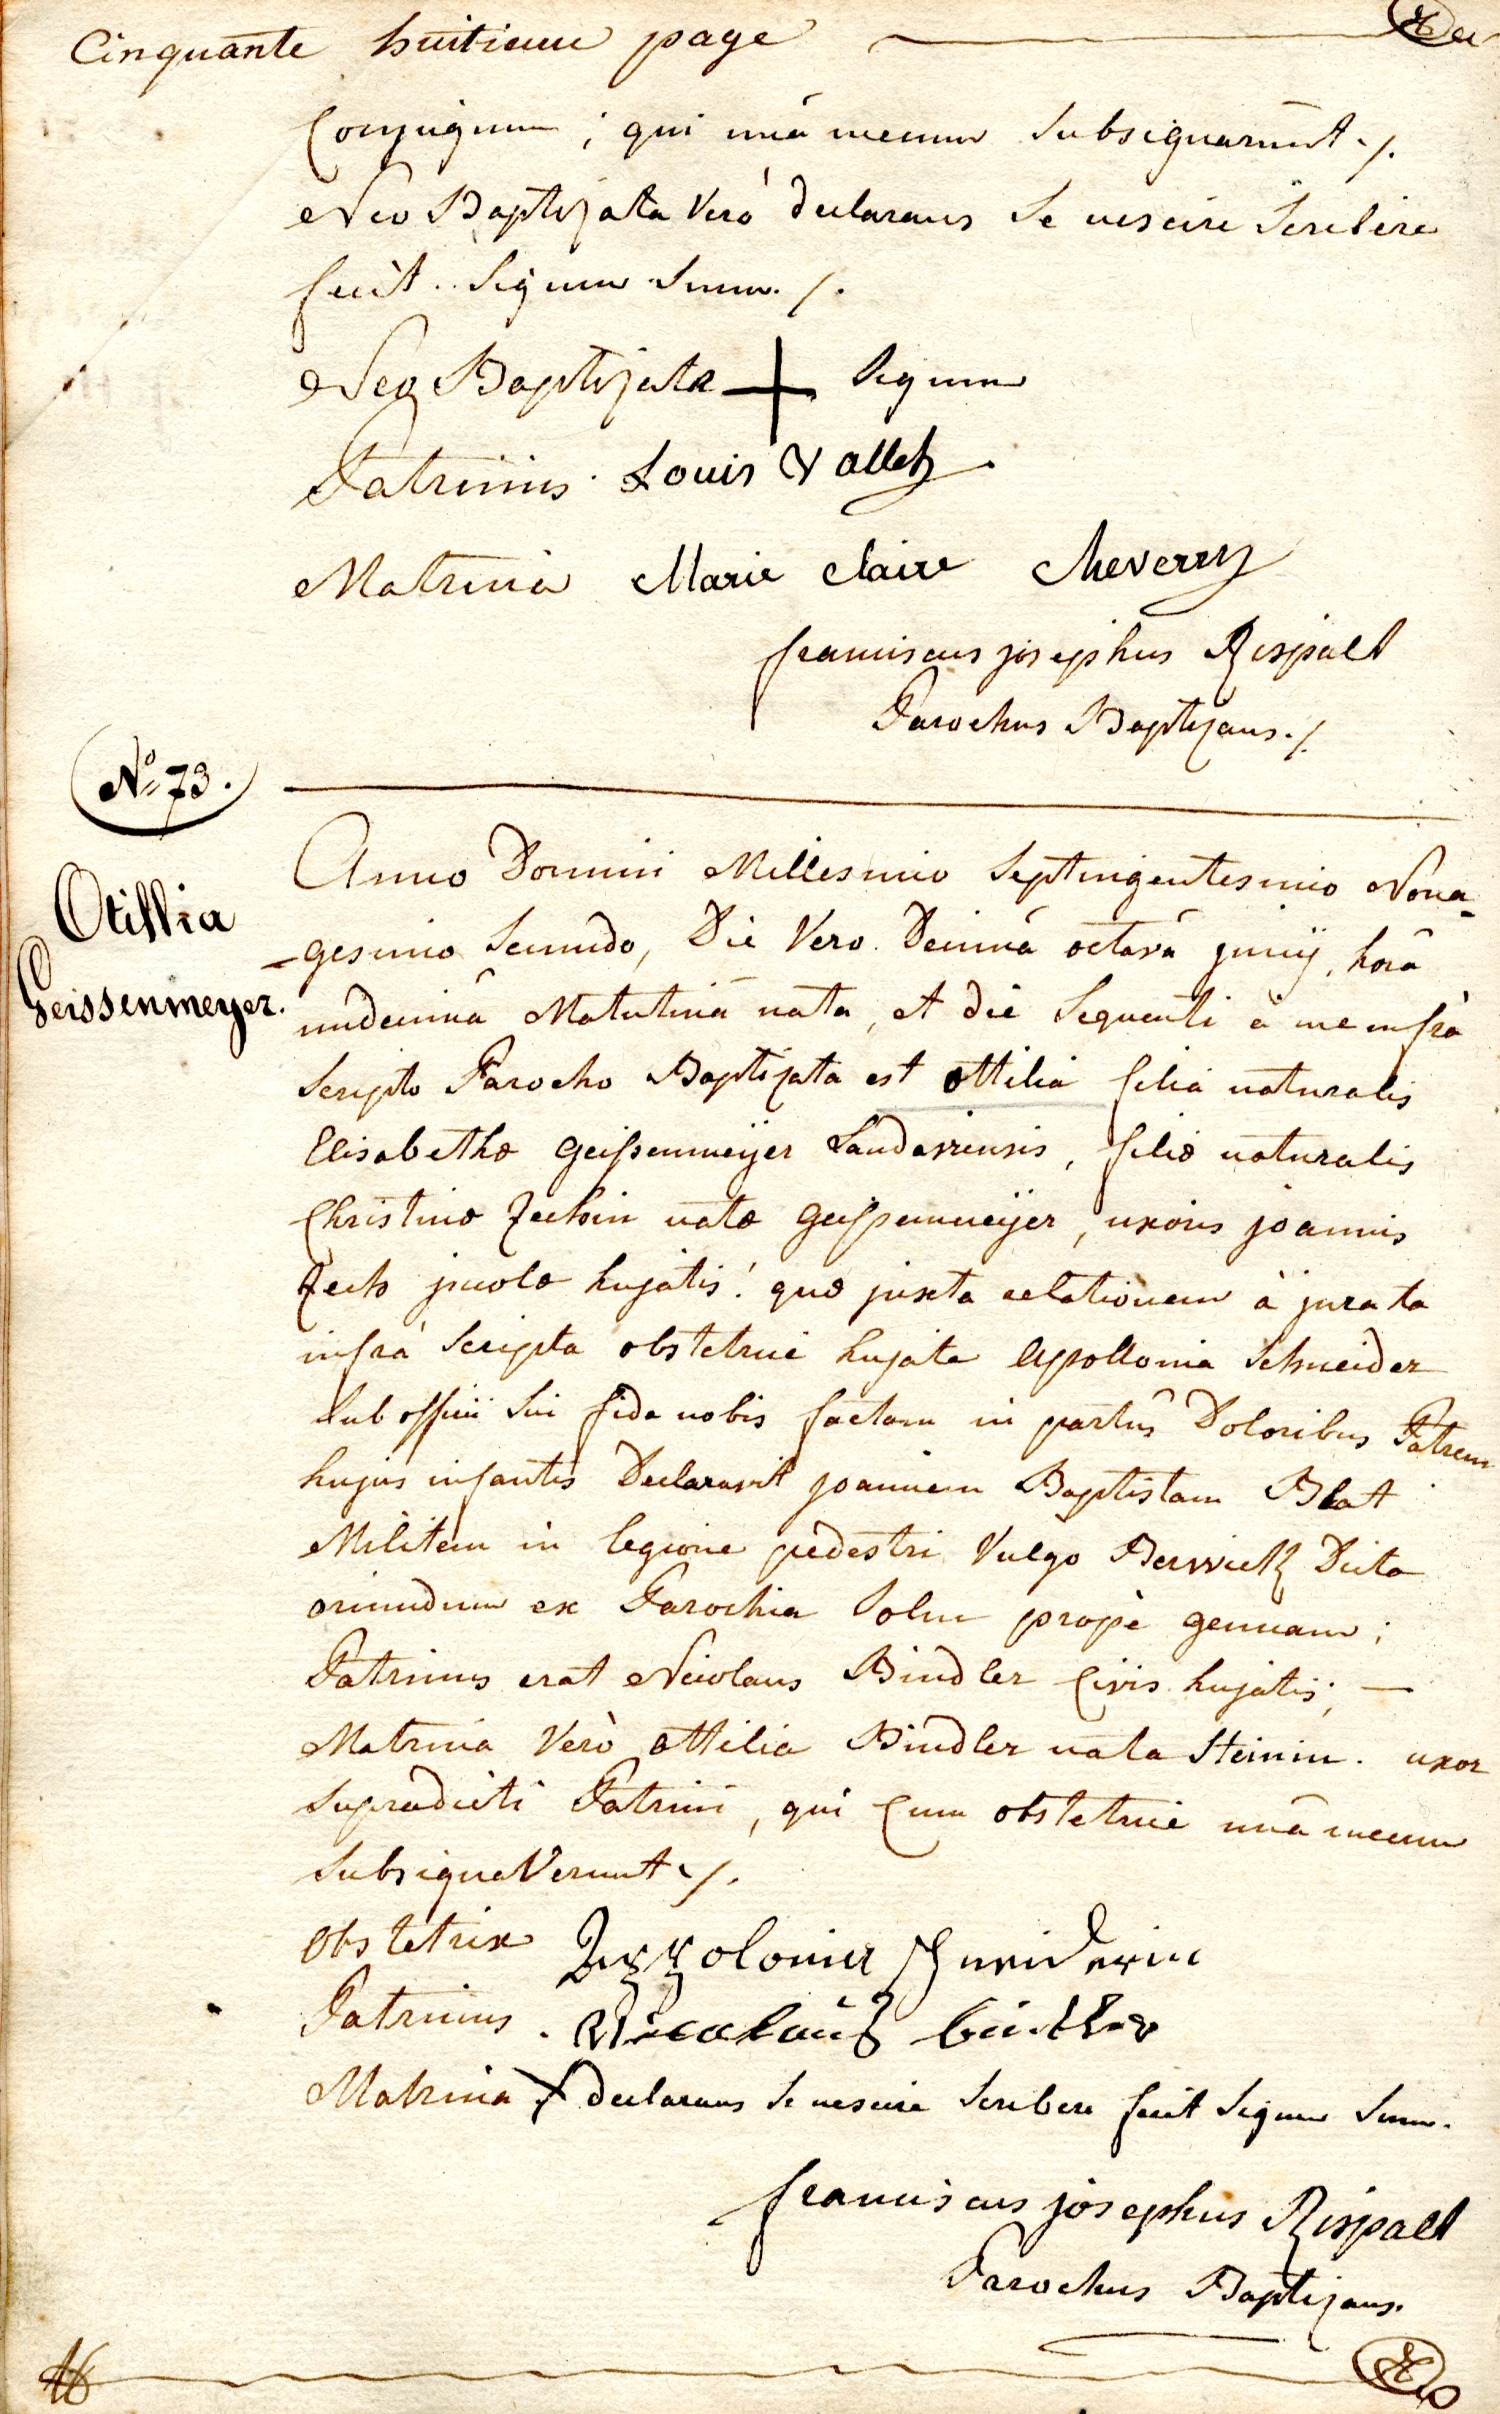 Cinquante huitieme page
Conjugum ; qui unà mecum Subsignarunt ./.
Neo Baptizata Verò declarans Se nescire Scribere
fecit Signum Suum ./.
Neo Baptizata + Signum
Patrinus . Louis Vallet
Matrina Marie Claire Cheverry
franciscus josephus Rispalt
Parochus Baptizans ./.
No 73.
Otillia
Geissenmeyer.
Anno Domini Millesimo Septingentesimo Nona-
-gesimo Secundo, Die Vero Decimâ octavâ junij, horâ
undecimâ Matutinâ nata, et die Sequenti à me infrà
Scripto Parocho Baptizata est Ottilia filia naturalis
Elisabethæ Geißenmeijer Landaviensis, filiæ naturalis
Christinæ Zechin natæ Geißenmeijer, uxoris joannis
Zech jncolæ hujatis : quæ juxta relationem à jurata
infrà Scripta obstetrice hujate Apollonia Schneider
Sub officii Sui fide nobis factam in partûs Doloribus Patrem
hujus infantis Declaravit joannem Baptistam Blat
Militem in legione pedestri Vulgo Berwick Dicta
oriundum ex Parochia Solm propè genuam ;
Patrinus erat Nicolaus Bindler Civis hujatis ; —
Matrina Verò Ottilia Bindler nata Steinin . uxor
Supradicti Patrini, qui Cum obstetrice unà mecum
SubsignaVerunt ./.
Obstetrix Appolonia Schneiderin
Patrinus . Nicolaus
Matrina + declarans Se nescire Scribere fecit Signum Suum.
franciscus josephus Rispalt
Parochus Baptizans.